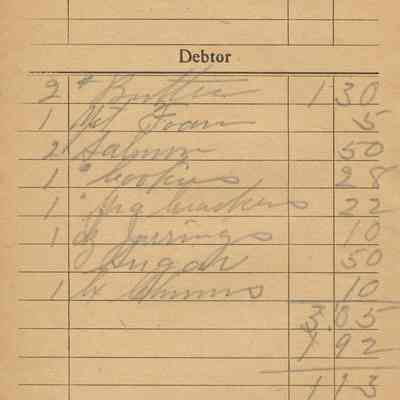 Debtor
2 # Butter 1 30
1 Pkt Foam 5
2 " Salmon 50
1 " Cookies 28
1 " crackers 22
1 10
Sugar 50
1 10
3.05
1 92
1 13